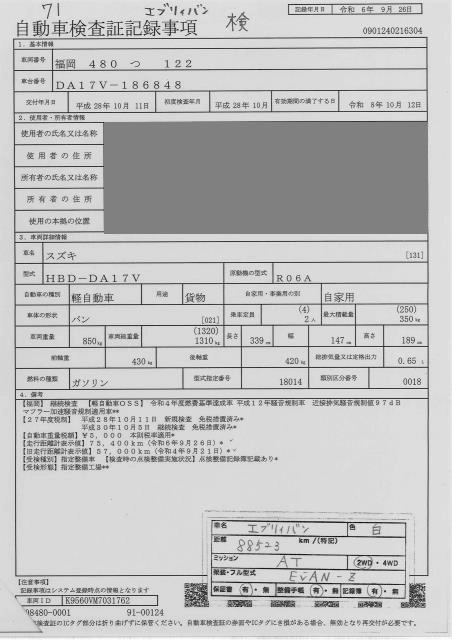 71 エブリィバン 検
記録年月日 令和 6年 9月 26日
自動車検査証記録事項
0901240216304
1. 基本情報
車両番号 福岡 480 つ 122
車台番号 DA17V-186848
交付年月日 平成 28年 10月 11日 初度検査年月 平成 28年 10月 有効期間の満了する日 令和 8年 10月 12日
2. 使用者・所有者情報
使用者の氏名又は名称
使用者の住所
所有者の氏名又は名称
所有者の住所
使用の本拠の位置
3. 車両詳細情報
車名 スズキ [131]
型式 HBD-DA17V 原動機の型式 R06A
自動車の種別 軽自動車 用途 貨物 自家用・事業用の別 自家用
車体の形状 バン [021] 乗車定員 (4) 2人 最大積載量 (250) 350kg
車両重量 850kg 車両総重量 (1320) 1310kg 長さ 339cm 幅 147cm 高さ 189cm
前軸重 430kg 後軸重 420kg 総排気量又は定格出力 0.65L
燃料の種類 ガソリン 型式指定番号 18014 類別区分番号 0018
4. 備考
【福岡】 継続検査 【軽自動車OSS】 令和4年度燃費基準達成車 平成12年騒音規制車 近接排気騒音規制値97dB
マフラー加速騒音規制適用車**
【27年度税制】 平成28年10月11日 新規検査 免税措置済み*
平成30年10月5日 継続検査 免税措置済み*
【自動車重量税額】¥5,000 本則税率適用*
【走行距離計表示値】75,400km(令和6年9月26日)*
【旧走行距離計表示値】57,000km(令和4年9月21日)*
【受検種別】指定整備車 【検査時の点検整備実施状況】点検整備記録簿記載あり*
【受検形態】指定整備工場**
車名 エブリィバン 色 白
距離 88523 km/(特記)
ミッション AT 2WD・4WD
架装・フル型式 EVAN-Z
保証書 有・無 整備手帳 有・無 記録簿 有・無
【注意事項】
記録事項はシステム登録時点の情報となります
車両ID K9560VM7031762
08480-0001 91-00124
検査証のICタグ部分は折り曲げずに保管ください。自動車検査証の券面やICタグに損傷がある場合、無効となり再交付が必要です。